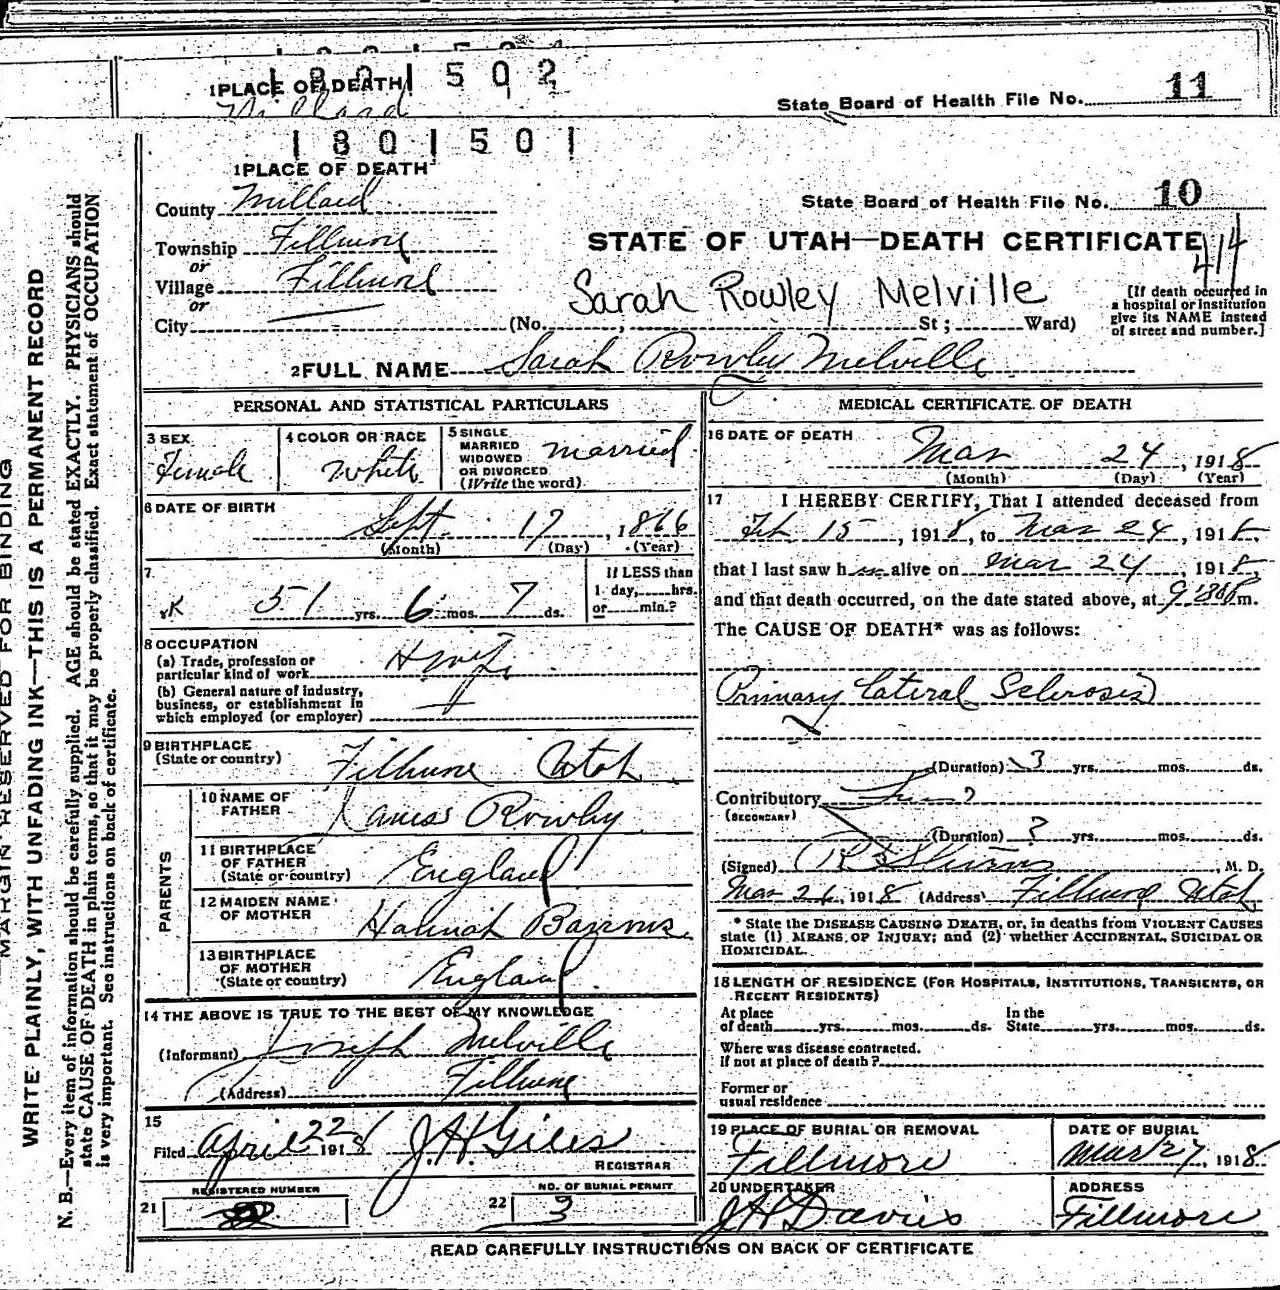 1801502
1 PLACE OF DEATH
Millard
State Board of Health File No. 11
1801501
1 PLACE OF DEATH
County Millard
State Board of Health File No. 10
Township Fillmore
or
Village Fillmore
or
City
STATE OF UTAH—DEATH CERTIFICATE
414
Sarah Rowley Melville
(No. , St ; Ward)
[If death occurred in
a hospital or institution
give its NAME instead
of street and number.]
2 FULL NAME Sarah Rowley Melville
PERSONAL AND STATISTICAL PARTICULARS
3 SEX
Female
4 COLOR OR RACE
White
5 SINGLE
MARRIED
WIDOWED
OR DIVORCED
(Write the word)
married
6 DATE OF BIRTH
Sept 17, 1866
(Month) (Day) (Year)
7
51 yrs. 6 mos. 7 ds.
If LESS than
1 day, hrs.
or min.?
8 OCCUPATION
(a) Trade, profession or
particular kind of work
(b) General nature of industry,
business, or establishment in
which employed (or employer)
9 BIRTHPLACE
(State or country)
Fillmore Utah
PARENTS
10 NAME OF
FATHER
James Rowley
11 BIRTHPLACE
OF FATHER
(State or country)
England
12 MAIDEN NAME
OF MOTHER
Hannah Barrows
13 BIRTHPLACE
OF MOTHER
(State or country)
England
14 THE ABOVE IS TRUE TO THE BEST OF MY KNOWLEDGE
(Informant) Joseph Melville
(Address) Fillmore
15
Filed April 22 1918 J.H. Giles
REGISTRAR
REGISTERED NUMBER
21
NO. OF BURIAL PERMIT
22 3
MEDICAL CERTIFICATE OF DEATH
16 DATE OF DEATH
Mar 24, 1918
(Month) (Day) (Year)
17 I HEREBY CERTIFY, That I attended deceased from
Feb 15, 1918, to Mar 24, 1918,
that I last saw her alive on Mar 24, 1918
and that death occurred, on the date stated above, at m.
The CAUSE OF DEATH* was as follows:
Primary Lateral Sclerosis
(Duration) 3 yrs. mos. ds.
Contributory
(SECONDARY)
(Duration) ? yrs. mos. ds.
(Signed) , M. D.
Mar 26, 1918 (Address) Fillmore Utah
* State the DISEASE CAUSING DEATH, or, in deaths from VIOLENT CAUSES
state (1) MEANS OF INJURY; and (2) whether ACCIDENTAL, SUICIDAL OR
HOMICIDAL.
18 LENGTH OF RESIDENCE (FOR HOSPITALS, INSTITUTIONS, TRANSIENTS, OR
RECENT RESIDENTS)
At place
of death yrs. mos. ds.
In the
State yrs. mos. ds.
Where was disease contracted.
if not at place of death?
Former or
usual residence
19 PLACE OF BURIAL OR REMOVAL
Fillmore
DATE OF BURIAL
Mar 27, 1918
20 UNDERTAKER
J H Davies
ADDRESS
Fillmore
READ CAREFULLY INSTRUCTIONS ON BACK OF CERTIFICATE
MARGIN RESERVED FOR BINDING
WRITE PLAINLY, WITH UNFADING INK—THIS IS A PERMANENT RECORD
N. B.—Every item of information should be carefully supplied. AGE should be stated EXACTLY. PHYSICIANS should
state CAUSE OF DEATH in plain terms, so that it may be properly classified. Exact statement of OCCUPATION
is very important. See instructions on back of certificate.